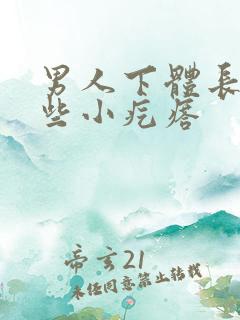 男人下體長
些小疙瘩
帝言21
未經同意禁止轉載